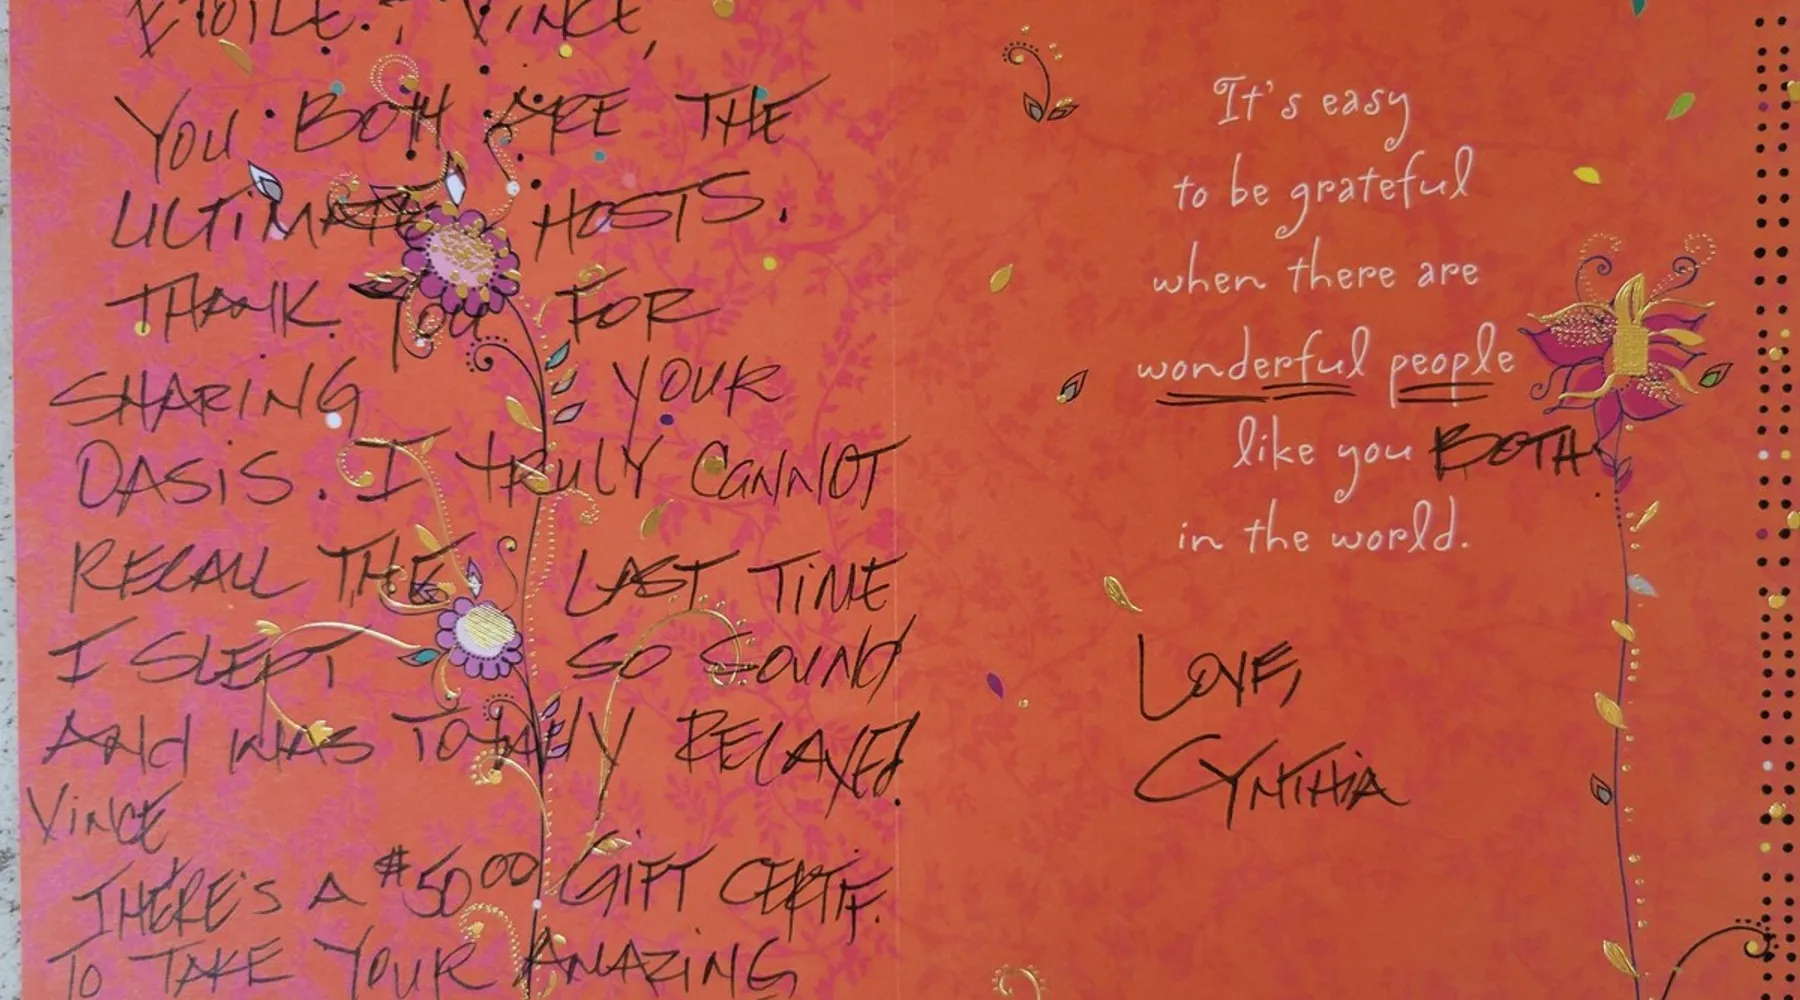 ETOILE. & VINCE,
YOU BOTH ARE THE
ULTIMATE HOSTS.
THANK YOU FOR
SHARING YOUR
OASIS. I TRULY CANNOT
RECALL THE LAST TIME
I SLEPT SO SOUND
AND WAS TOTALLY RELAXED.
VINCE
THERE'S A $50.00 GIFT CERTIF.
TO TAKE YOUR AMAZING
It's easy
to be grateful
when there are
wonderful people
like you BOTH.
in the world.
LOVE,
CYNTHIA